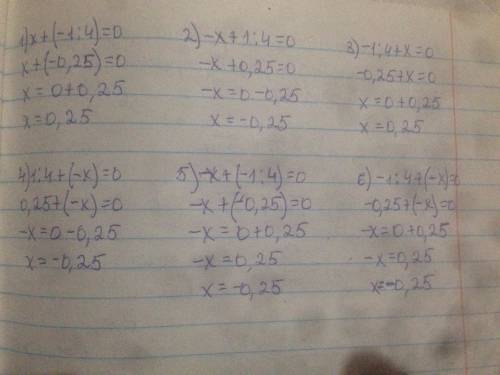 1) x + (-1:4) = 0
x + (-0,25) = 0
x = 0 + 0,25
x = 0,25
2) -x + 1:4 = 0
-x + 0,25 = 0
-x = 0 - 0,25
x = -0,25
3) -1:4 + x = 0
-0,25 + x = 0
x = 0 + 0,25
x = 0,25
4) 1:4 + (-x) = 0
0,25 + (-x) = 0
-x = 0 - 0,25
x = -0,25
5) -x + (-1:4) = 0
-x + (-0,25) = 0
-x = 0 + 0,25
-x = 0,25
x = -0,25
6) -1:4 + (-x) = 0
-0,25 + (-x) = 0
-x = 0 + 0,25
-x = 0,25
x = -0,25